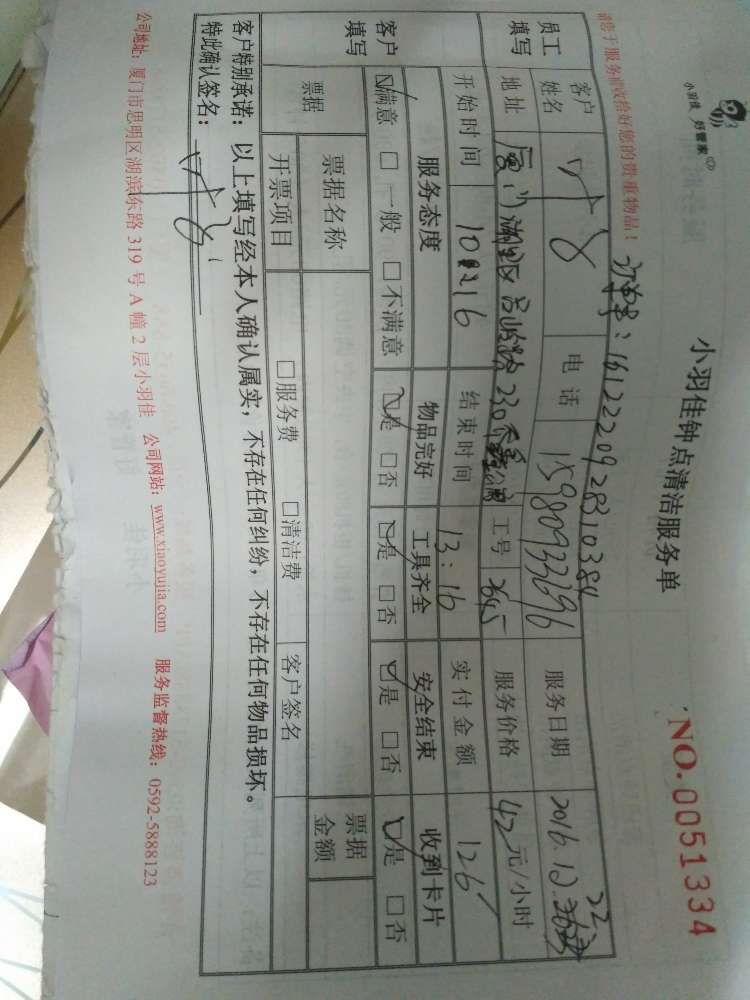 小羽佳 好管家
小羽佳钟点清洁服务单
NO.0051334
请您于服务前收拾好您的贵重物品!
订单号:161222092831038
员工填写
客户姓名 叶
电话 15980933696
服务日期 2016.12.22
地址 厦门湖里区吕岭路230
工号 2645
服务价格 42元/小时
开始时间 10:16
结束时间 13:16
实付金额 126
客户填写
服务态度 物品完好 工具齐全 安全结束 收到卡片
☑满意 □一般 □不满意 ☑是 □否 ☑是 □否 ☑是 □否 ☑是 □否
票据
票据名称
票据金额
开票项目 □服务费 □清洁费 客户签名
客户特别承诺:以上填写经本人确认属实,不存在任何纠纷,不存在任何物品损坏。
特此确认签名:叶
公司地址:厦门市思明区湖滨东路 319 号 A 幢 2 层小羽佳 公司网站:www.xiaoyujia.com 服务监督热线:0592-5888123